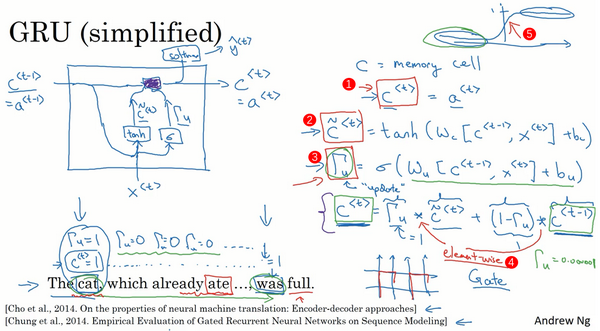 GRU (simplified)
softmax
ŷ<t>
5
c<t-1>
=a<t-1>
c<t>
=a<t>
c̃<t>
Γu
tanh
σ
x<t>
C = memory cell
1
c<t> = a<t>
2
c̃<t> = tanh(Wc[c<t-1>, x<t>] + bc)
3
Γu = σ(Wu[c<t-1>, x<t>] + bu)
"update"
c<t> = Γu * c̃<t> + (1-Γu) * c<t-1>
element-wise
4
Gate
Γu = 0.000001
Γu=1
c<t>=1
Γu=0 Γu=0 Γu=0 ......
...... =1
The cat, which already ate ..., was full.
[Cho et al., 2014. On the properties of neural machine translation: Encoder-decoder approaches]
[Chung et al., 2014. Empirical Evaluation of Gated Recurrent Neural Networks on Sequence Modeling]
Andrew Ng